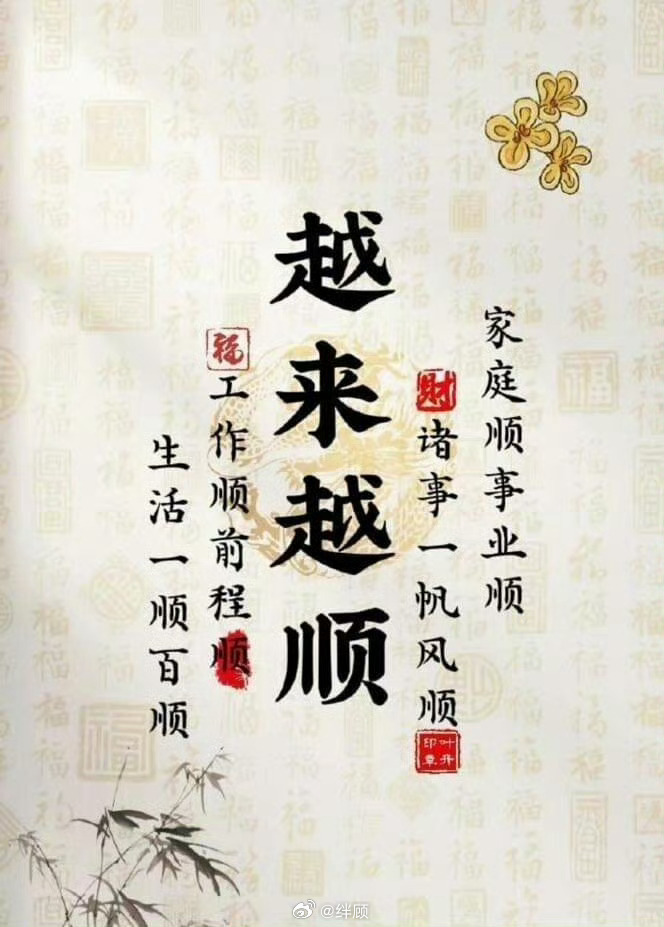 家庭顺事业顺
财
诸事一帆风顺
叶开
印章
越来越顺
福
工作顺前程顺
生活一顺百顺
@绊顾